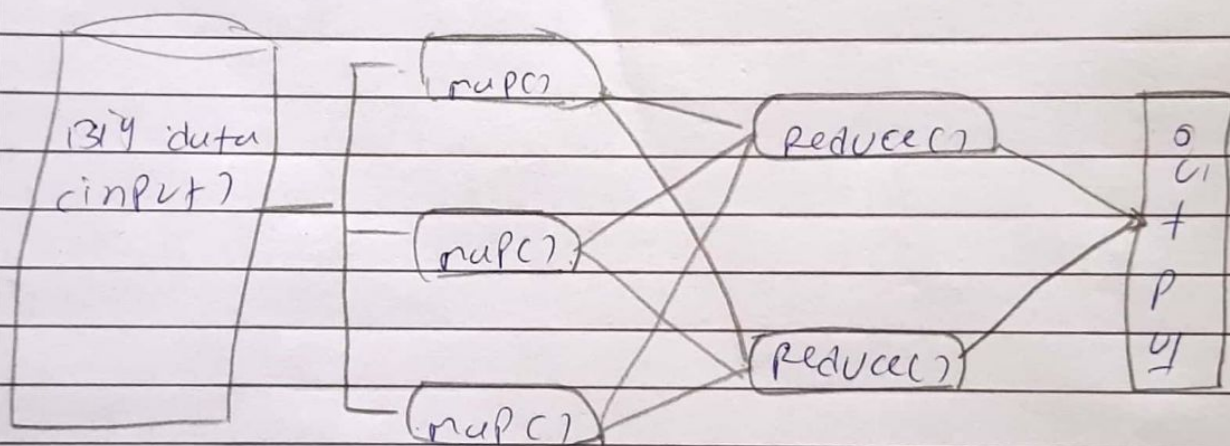 Big data
(input)
map()
map()
map()
Reduce()
Reduce()
output